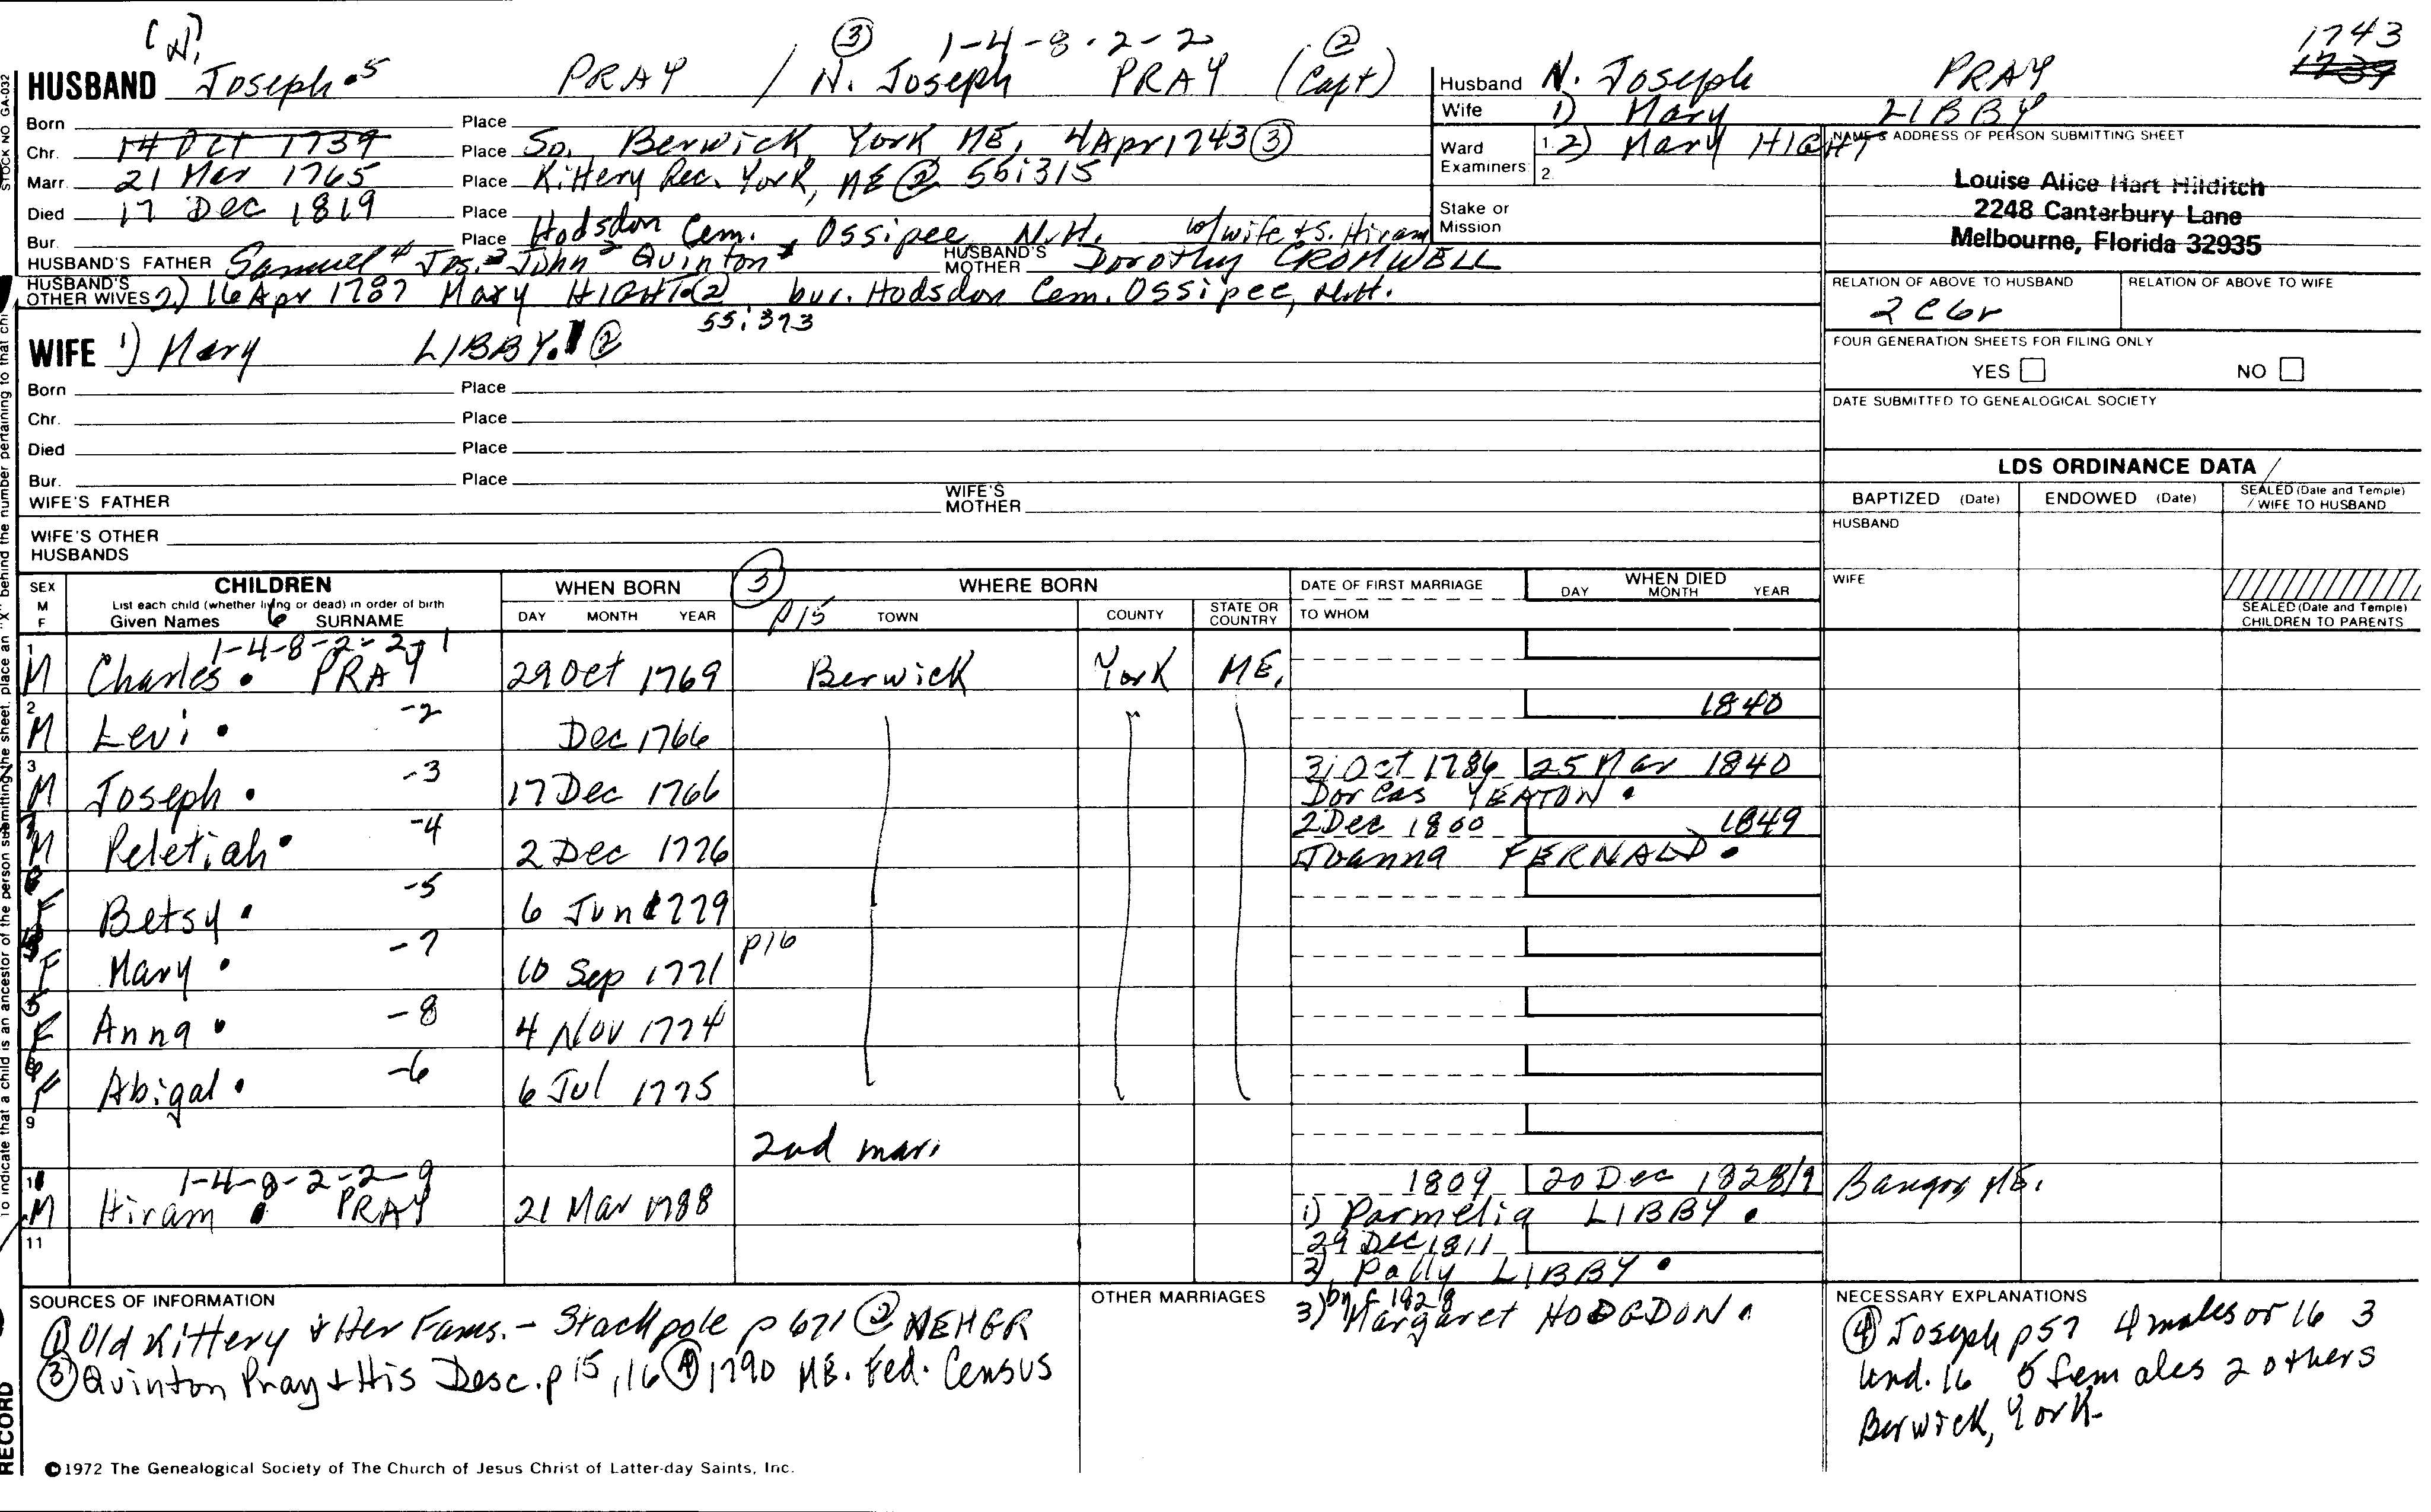 (N)
③ 1-4-8-2-2 ②
1743
HUSBAND Joseph.5 PRAY / N. Joseph PRAY (Capt)
Husband N. Joseph PRAY 1739
Wife 1) Mary LIBBY
Born Place
Chr. 14 Oct 1739 Place So. Berwick York ME, 4 Apr 1743 ③
Ward Examiners 1. 2) Mary HIGHT
2.
NAME & ADDRESS OF PERSON SUBMITTING SHEET
Marr. 21 Mar 1765 Place Kittery Rec. York, ME ② 55:315
Louise Alice Hart Hilditch
2248 Canterbury Lane
Melbourne, Florida 32935
Died 17 Dec 1819 Place
Stake or Mission
Bur. Place Hodsdon Cem. Ossipee N.H. w/wife + s. Hiram
HUSBAND'S FATHER Samuel4 Jos.3 John2 Quinton1 HUSBAND'S MOTHER Dorothy CROMWELL
HUSBAND'S OTHER WIVES 2) 16 Apr 1787 Mary HIGHT ② bur. Hodsdon Cem. Ossipee, N.H.
55:373
RELATION OF ABOVE TO HUSBAND RELATION OF ABOVE TO WIFE
2 C 6r
WIFE 1) Mary LIBBY. ②
FOUR GENERATION SHEETS FOR FILING ONLY
YES NO
Born Place
Chr. Place
DATE SUBMITTED TO GENEALOGICAL SOCIETY
Died Place
Bur. Place
WIFE'S FATHER WIFE'S MOTHER
WIFE'S OTHER HUSBANDS
LDS ORDINANCE DATA
BAPTIZED (Date) ENDOWED (Date) SEALED (Date and Temple) / WIFE TO HUSBAND
HUSBAND
WIFE
SEALED (Date and Temple) CHILDREN TO PARENTS
SEX M F CHILDREN WHEN BORN ③ WHERE BORN DATE OF FIRST MARRIAGE WHEN DIED
List each child (whether living or dead) in order of birth
Given Names 6 SURNAME DAY MONTH YEAR p15 TOWN COUNTY STATE OR COUNTRY TO WHOM DAY MONTH YEAR
1 1-4-8-2-2-1
M Charles. PRAY 29 Oct 1769 Berwick York ME.
2 -2 1840
M Levi. Dec 1766
3 -3 31 Oct 1786 25 Mar 1840
M Joseph. 17 Dec 1766 Dorcas YEATON.
-4 2 Dec 1800 1849
M Peletiah. 2 Dec 1776 Joanna FERNALD.
-5
F Betsy. 6 Jun 1779
-7 p16
F Mary. 10 Sep 1771
5 -8
F Anna. 4 Nov 1774
6 -6
F Abigal. 6 Jul 1775
9
2nd mar.
10 1-4-8-2-2-9 1809 20 Dec 1828/9 Bangor, ME.
M Hiram. PRAY 21 Mar 1788 1) Parmelia LIBBY.
11 29 Dec 1811
2) Polly LIBBY.
SOURCES OF INFORMATION
① Old Kittery & Her Fams. - Stackpole p 671 ② NEHGR
③ Quinton Pray & His Desc. p 15, 16 ④ 1790 ME. Fed. Census
OTHER MARRIAGES
by c 1828
3) Margaret HODGDON.
NECESSARY EXPLANATIONS
④ Joseph p57 4 males or 16 3
und. 16 5 females 2 others
Berwick, York
©1972 The Genealogical Society of The Church of Jesus Christ of Latter-day Saints, Inc.
STOCK NO. GA-032
To indicate that a child is an ancestor of the person submitting the sheet, place an "X" behind the number pertaining to that chi
RECORD